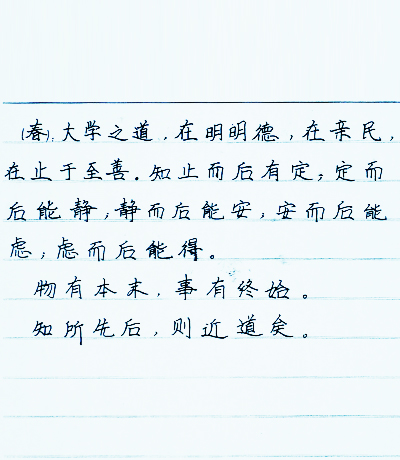 (春)：大学之道，在明明德，在亲民，
在止于至善。知止而后有定；定而
后能静；静而后能安；安而后能
虑；虑而后能得。
物有本末，事有终始。
知所先后，则近道矣。